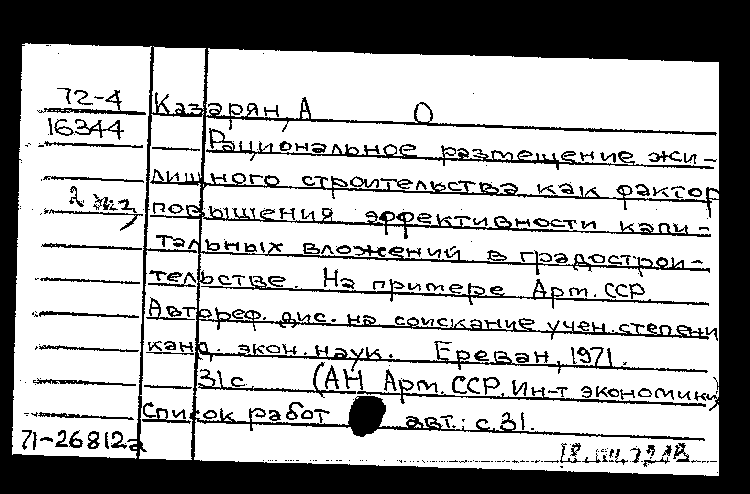 72-4 Казарян, А О
16344 Рациональное размещение жи-
лищного строительства как фактор
2 экз, повышения эффективности капи-
тальных вложений в градострои-
тельстве. На примере Арм. ССР.
Автореф. дис. на соискание учен. степени
канд. экон. наук. Ереван, 1971.
31 с. (АН Арм. ССР. Ин-т экономики)
Список работ авт.: с. 31.
71-26812а